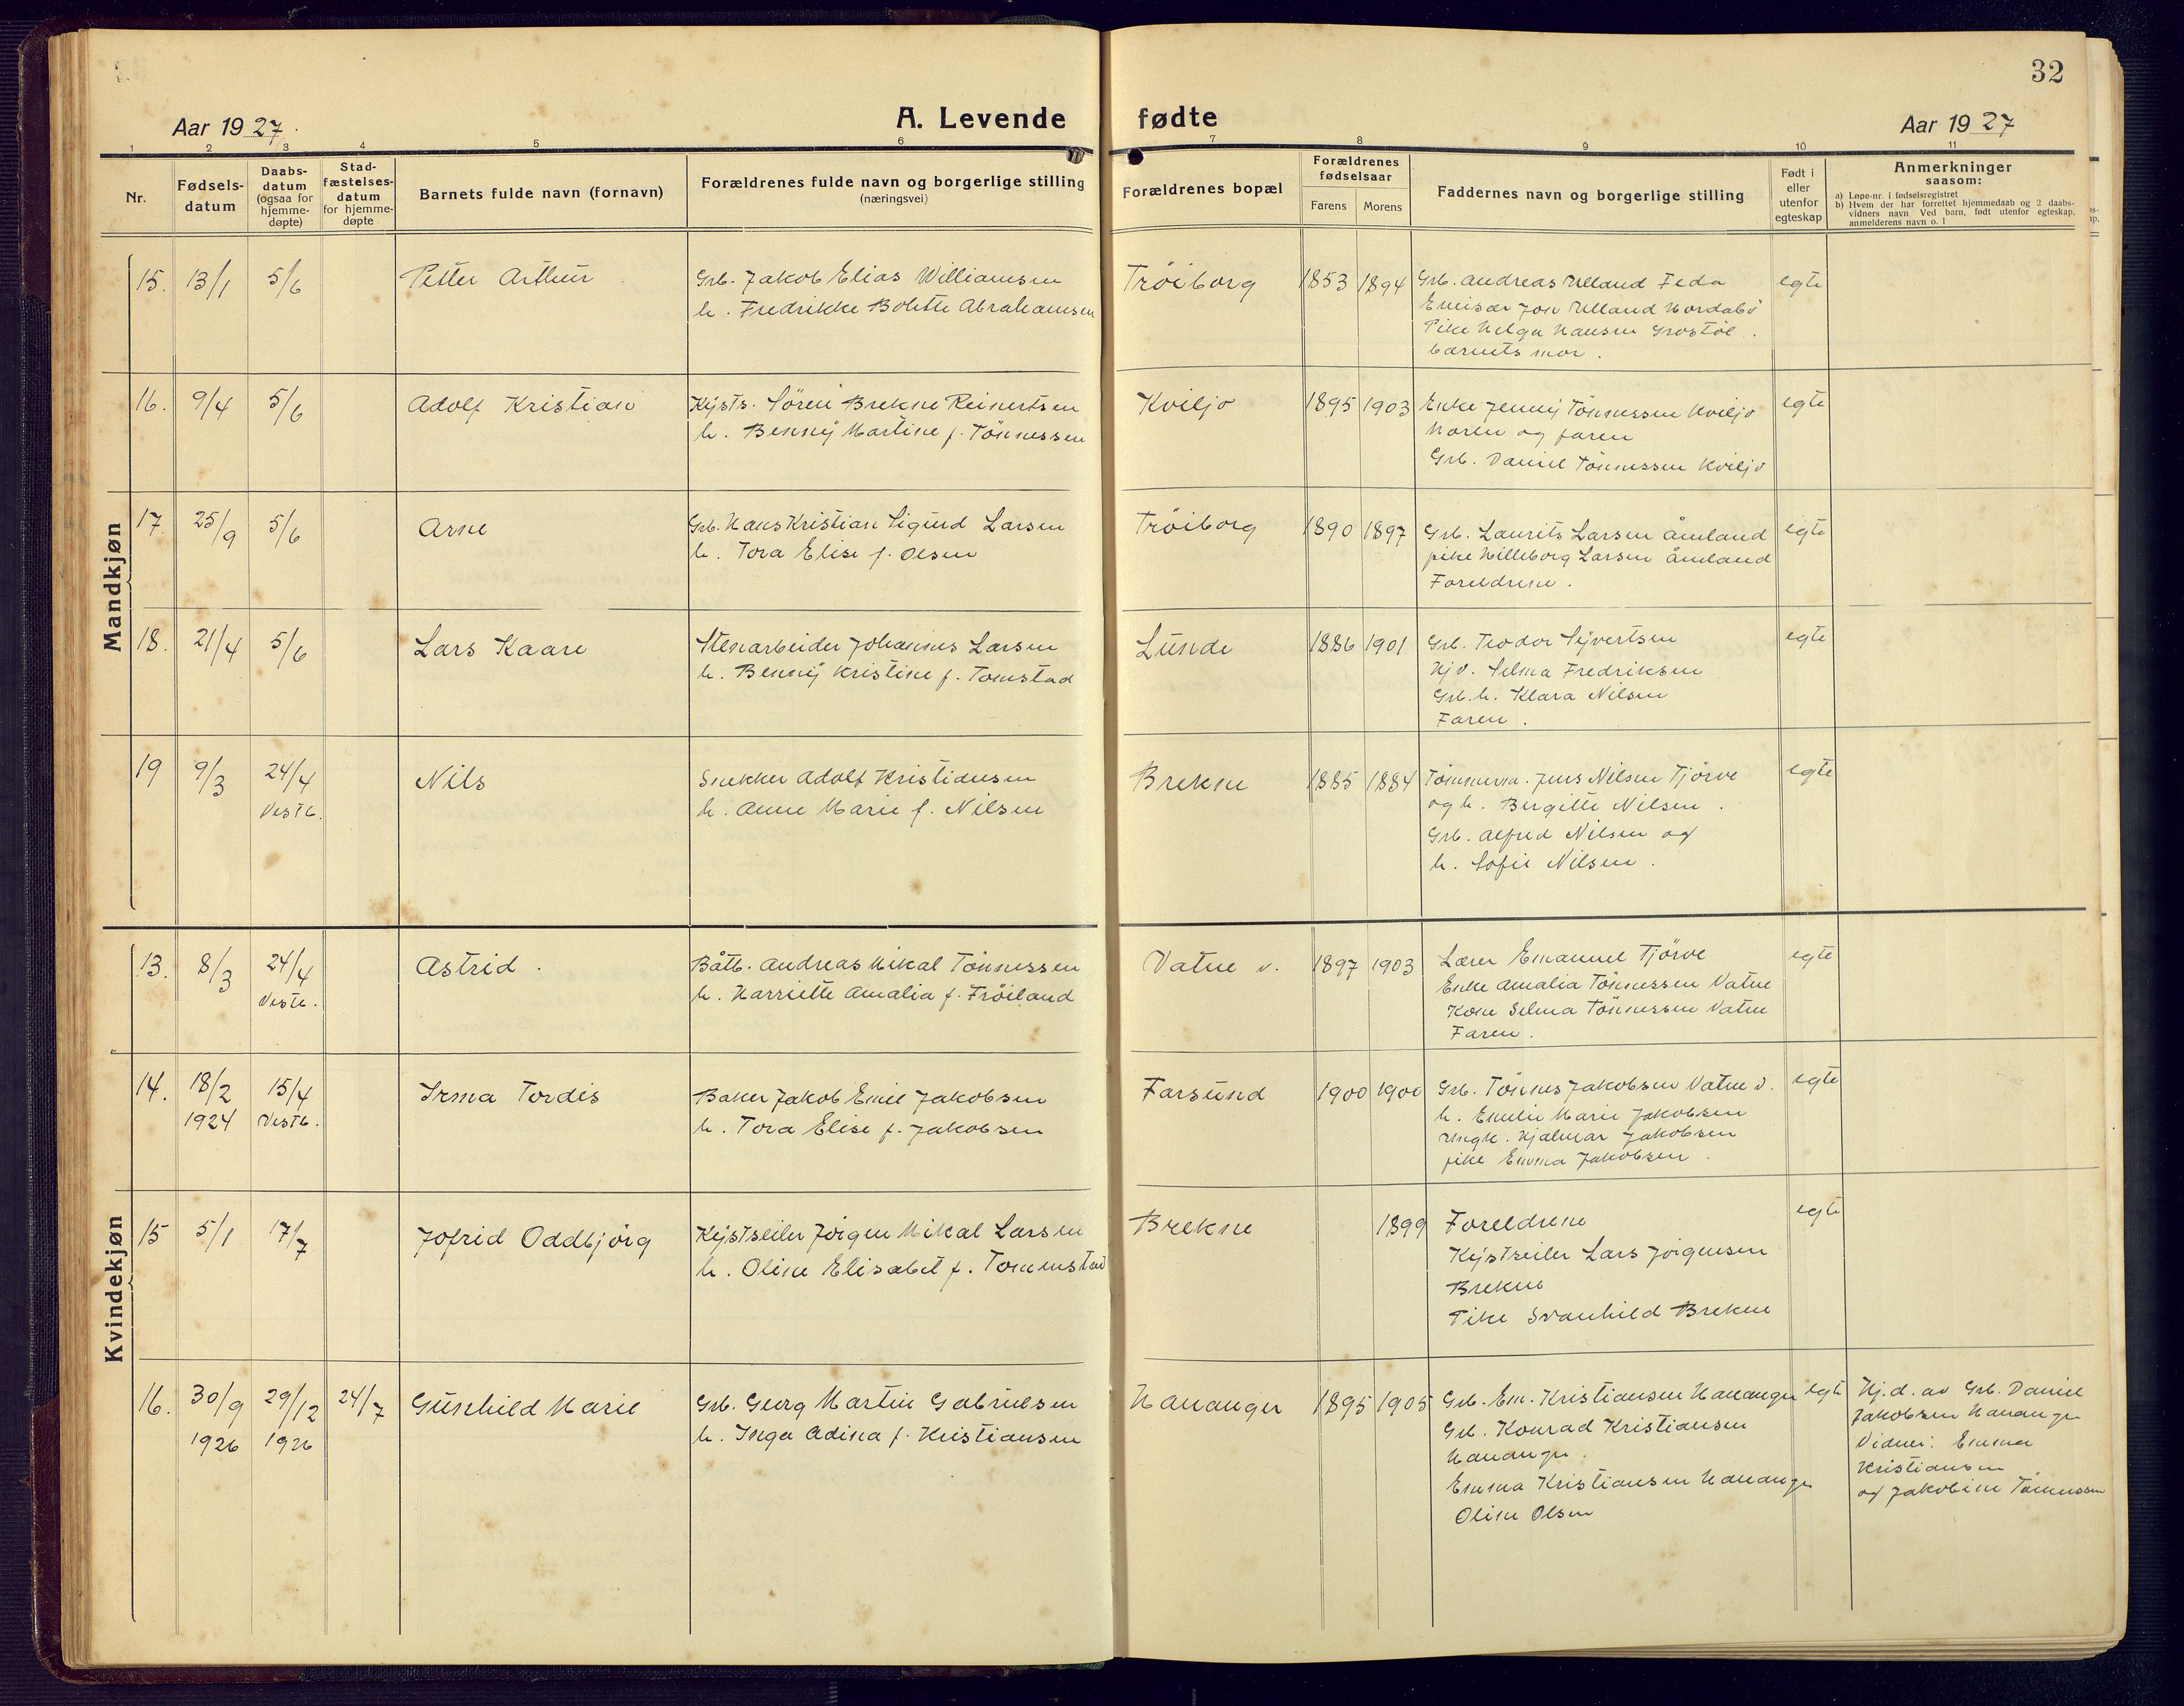 32
Aar 1927.
A. Levende fødte
Aar 1927
1 2 3 4 5 6 7 8 9 10 11
Nr.
Fødsels-
datum
Daabs-
datum
(ogsaa for
hjemme-
døpte)
Stad-
fæstelses-
datum
for hjemme-
døpte
Barnets fulde navn (fornavn)
Forældrenes fulde navn og borgerlige stilling
(næringsvei)
Forældrenes bopæl
Forældrenes
fødselsaar
Farens Morens
Faddernes navn og borgerlige stilling
Født i
eller
utenfor
egteskap
Anmerkninger
saasom:
a) Løpe-nr. i fødselsregistret
b) Hvem der har forrettet hjemmedaab og 2 daabs-
vidners navn Ved barn, født utenfor egteskap,
anmelderens navn o. l
Mandkjøn
15. 13/1 5/6 Petter Arthur
Grb. Jakob Elias Williamsen
h. Fredrikke Bolette Abrahamsen
Tröiborg 1853 1894
Grb. Andreas Ulland Feda
Emisær Jon Ulland Nordabö
Pike Helga Hansen Grostöl.
barnets mor.
egte
16. 9/4 5/6 Adolf Kristian
Kysts. Sören Brekne Reinertsen
h. Benny Martine f. Tönnessen
Kviljo 1895 1903
Enke Jenny Tönnessen Kviljo
Moren og faren
Grb. Daniel Tönnessen Kviljo
egte
17. 25/9 5/6 Arne
Grb. Hans Kristian Sigurd Larsen
h. Tora Elise f. Olsen
Tröiborg 1890 1897
Grb. Laurits Larsen Åmland
pike Hilleborg Larsen Åmland
Foreldrene.
egte
18. 21/4 5/6 Lars Kaare
Stenarbeider Johannes Larsen
h. Benny Kristine f. Tomstad
Lunde 1886 1901
Grb. Teodor Syvertsen
Hjv. Selma Fredriksen
Grb.h. Klara Nilsen
Faren.
egte
19 9/3 24/4 Nils
Vestb.
Snekker Adolf Kristiansen
h. Anne Marie f. Nilsen
Brekne 1885 1884
Tömmerm. Jens Nilsen Tjörve
og h. Bergitte Nilsen.
Grb. Alfred Nilsen og
h. Sofie Nilsen.
egte
Kvindekjøn
13. 8/3 24/4 Astrid.
Vestb.
Båtb. Andreas Mikal Tönnessen
h. Harriette Amalia f. Fröiland
Vatne v. 1897 1903
Lærer Emanuel Tjörve
Enke Amalia Tönnessen Vatne
Kone Selma Tönnessen Vatne
Faren.
egte
14. 18/2 15/4 Irma Tordis
1924 Vestb.
Baker Jakob Emil Jakobsen
h. Tora Elise f. Jakobsen
Farsund 1900 1900
Grb. Tönnes Jakobsen Vatne v.
h. Emelie Marie Jakobsen
Ungk. Hjalmar Jakobsen
pike Emma Jakobsen.
egte
15 5/1 17/7 Jofrid Oddbjörg
Kystseiler Jörgen Mikal Larsen
h. Oline Elisabet f. Tommstad
Brekne 1899
Foreldrene
Kystseiler Lars Jörgensen
Brekne
Pike Svanhild Brekne
egte
16. 30/9 29/12 24/7 Gunhild Marie
1926 1926
Grb. Georg Martin Gabrielsen
h. Inga Adina f. Kristiansen
Hananger 1895 1905
Grb. Em. Kristiansen Hananger
Grb. Konrad Kristiansen
Hananger.
Emma Kristiansen Hananger
Oline Olsen
egte
Hj.d. av Grb. Daniel
Jakobsen Hananger
Vidner: Emma
Kristiansen
og Jakobine Tönnessen